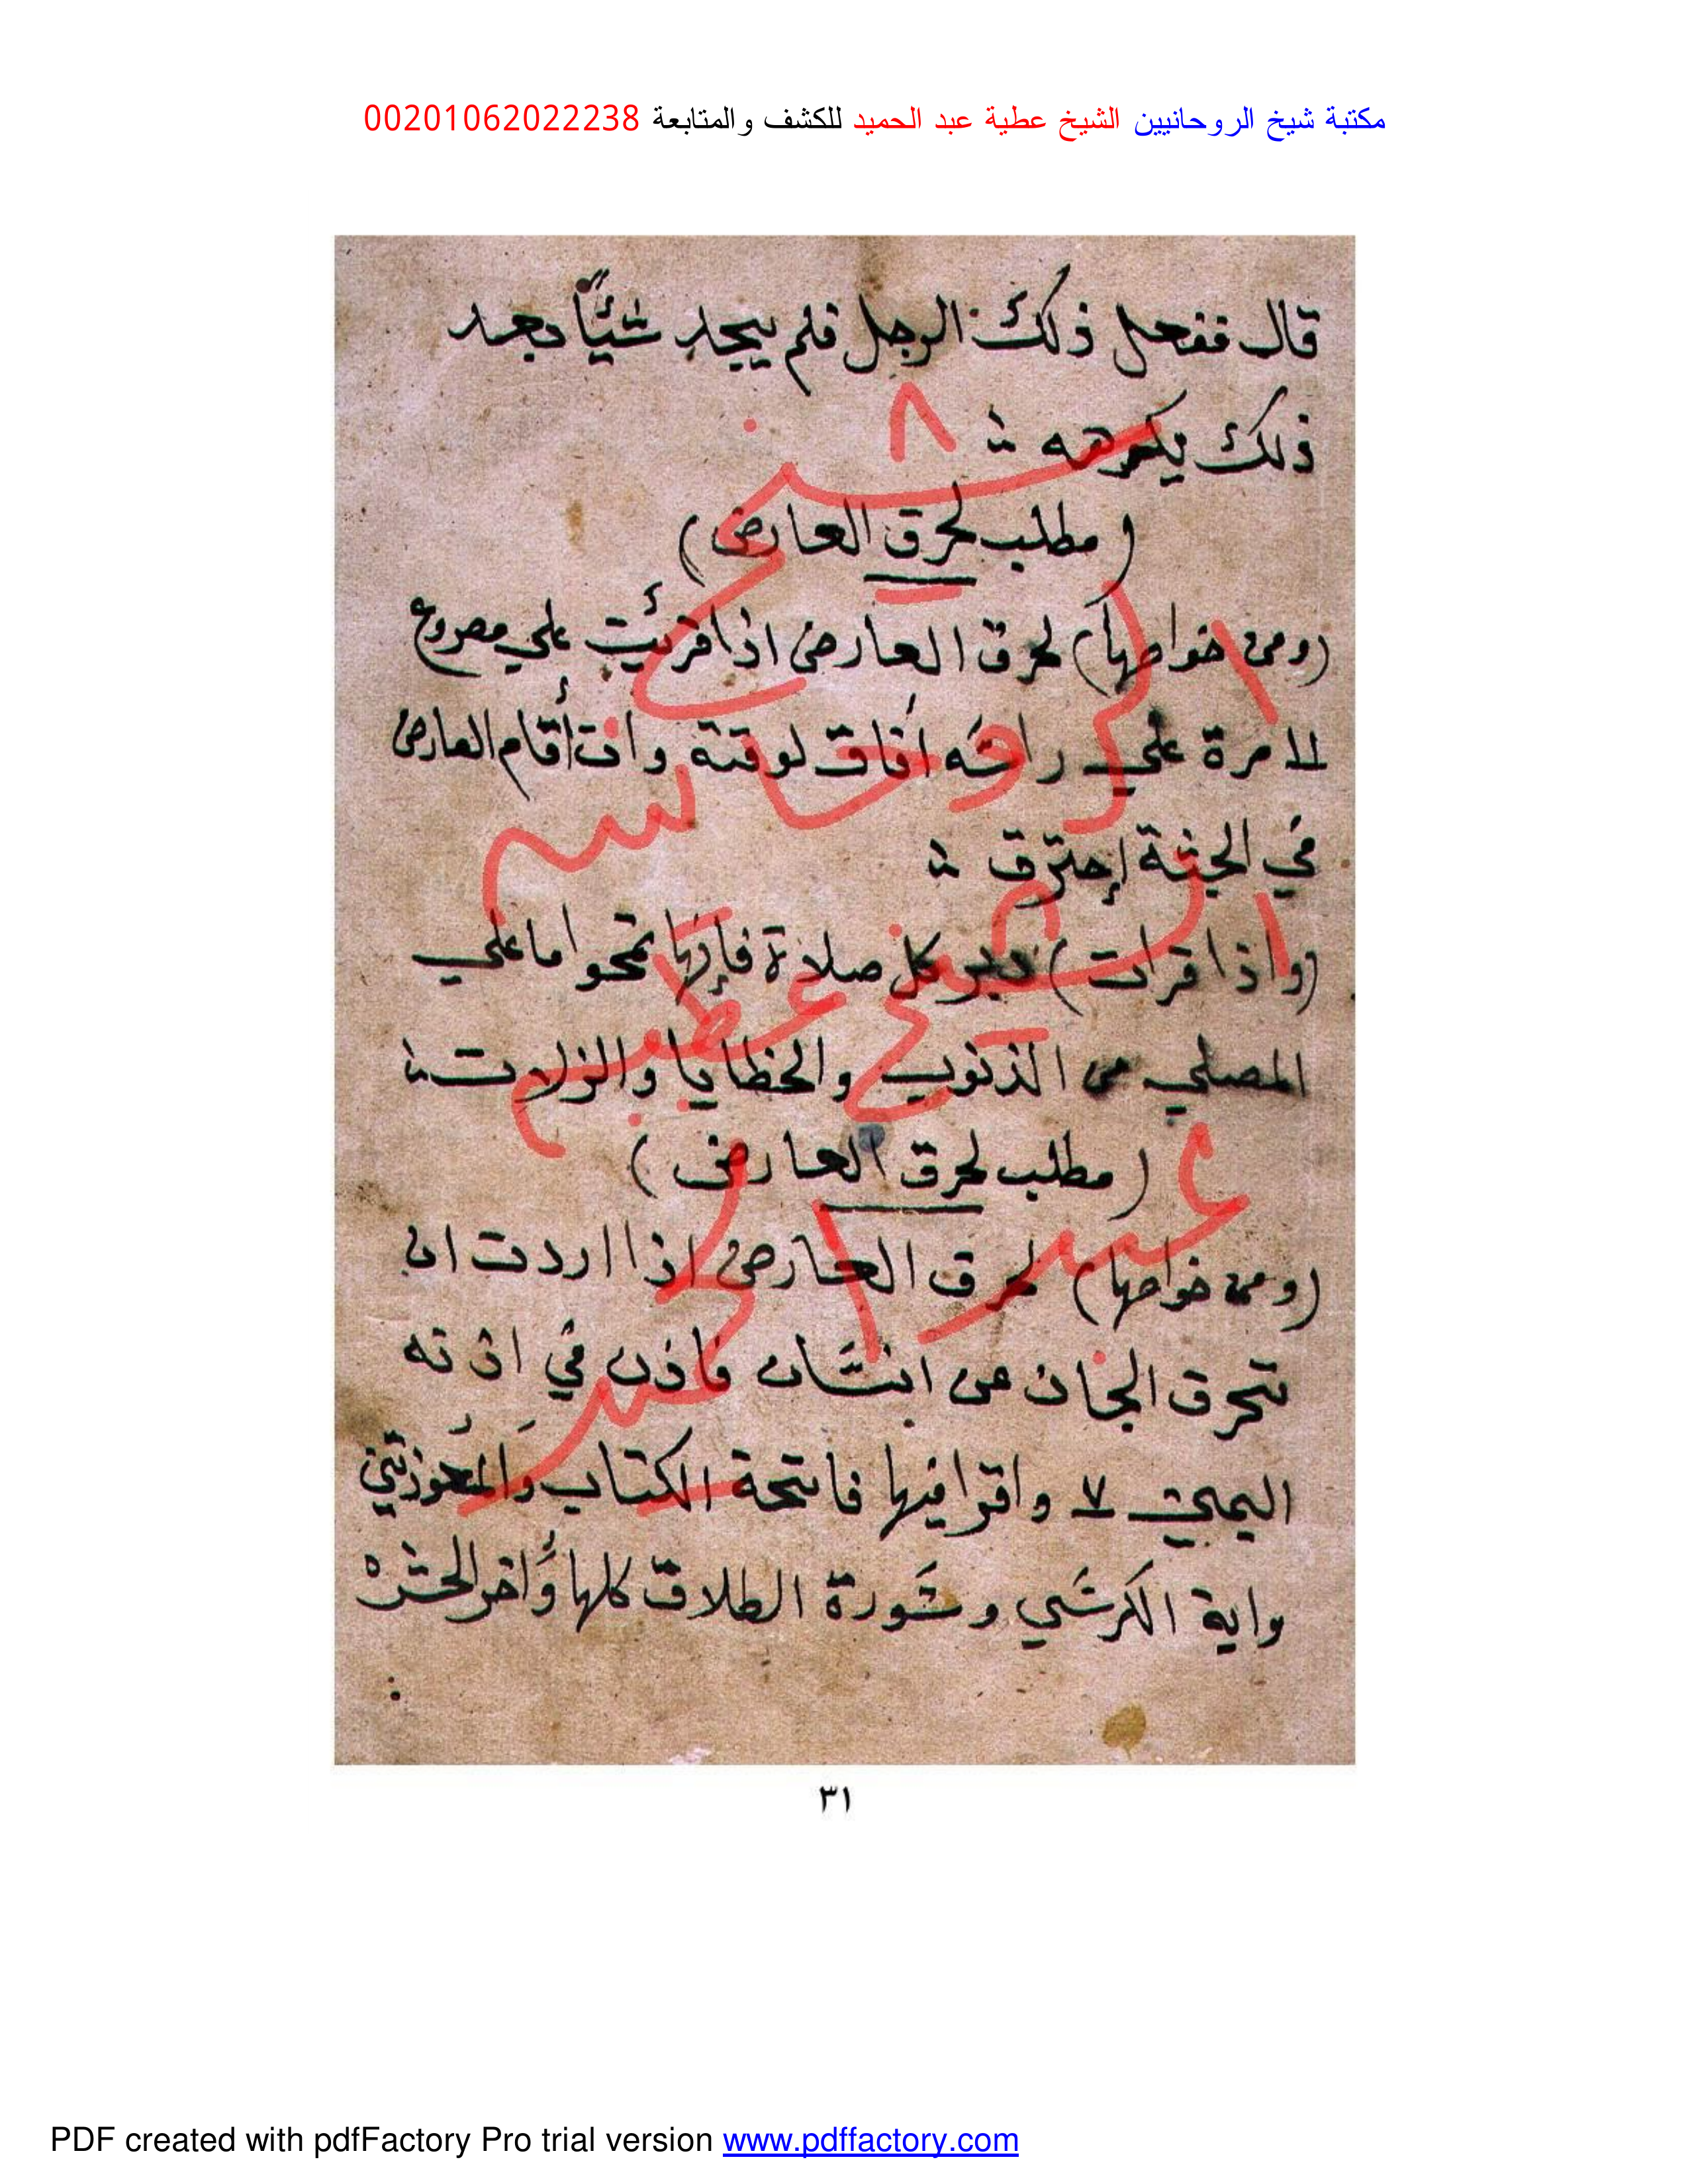 مكتبة شيخ الروحانيين الشيخ عطية عبد الحميد للكشف والمتابعة 00201062022238
قال ففعل ذلك الرجل فلم يجد شئيًا بعد
ذلك يكرهه
(مطلب لحرق العارض)
(ومن خواصها) لحرق العارض اذا قرئت علي مصروع
مرة علي راسه أفاق لوقته وان أقام العارض
في الجثة إحترق
(واذا قرات) دبر كل صلاة فإنها تمحوا ما علي
المصلي من الذنوب والخطايا والزلات
(مطلب لحرق العارض)
(ومن خواصها) لحرق العارض اذا اردت ان
تحرق الجان من انسان فاذن في اذنه
اليمين ٧ واقرا فيها فاتحة الكتاب والمعوذتين
واية الكرسي وسورة الطلاق كلها وأخر الحشر
شيخ
الروحانيين
الشيخ عطية
عبد الحميد
٣١
PDF created with pdfFactory Pro trial version www.pdffactory.com